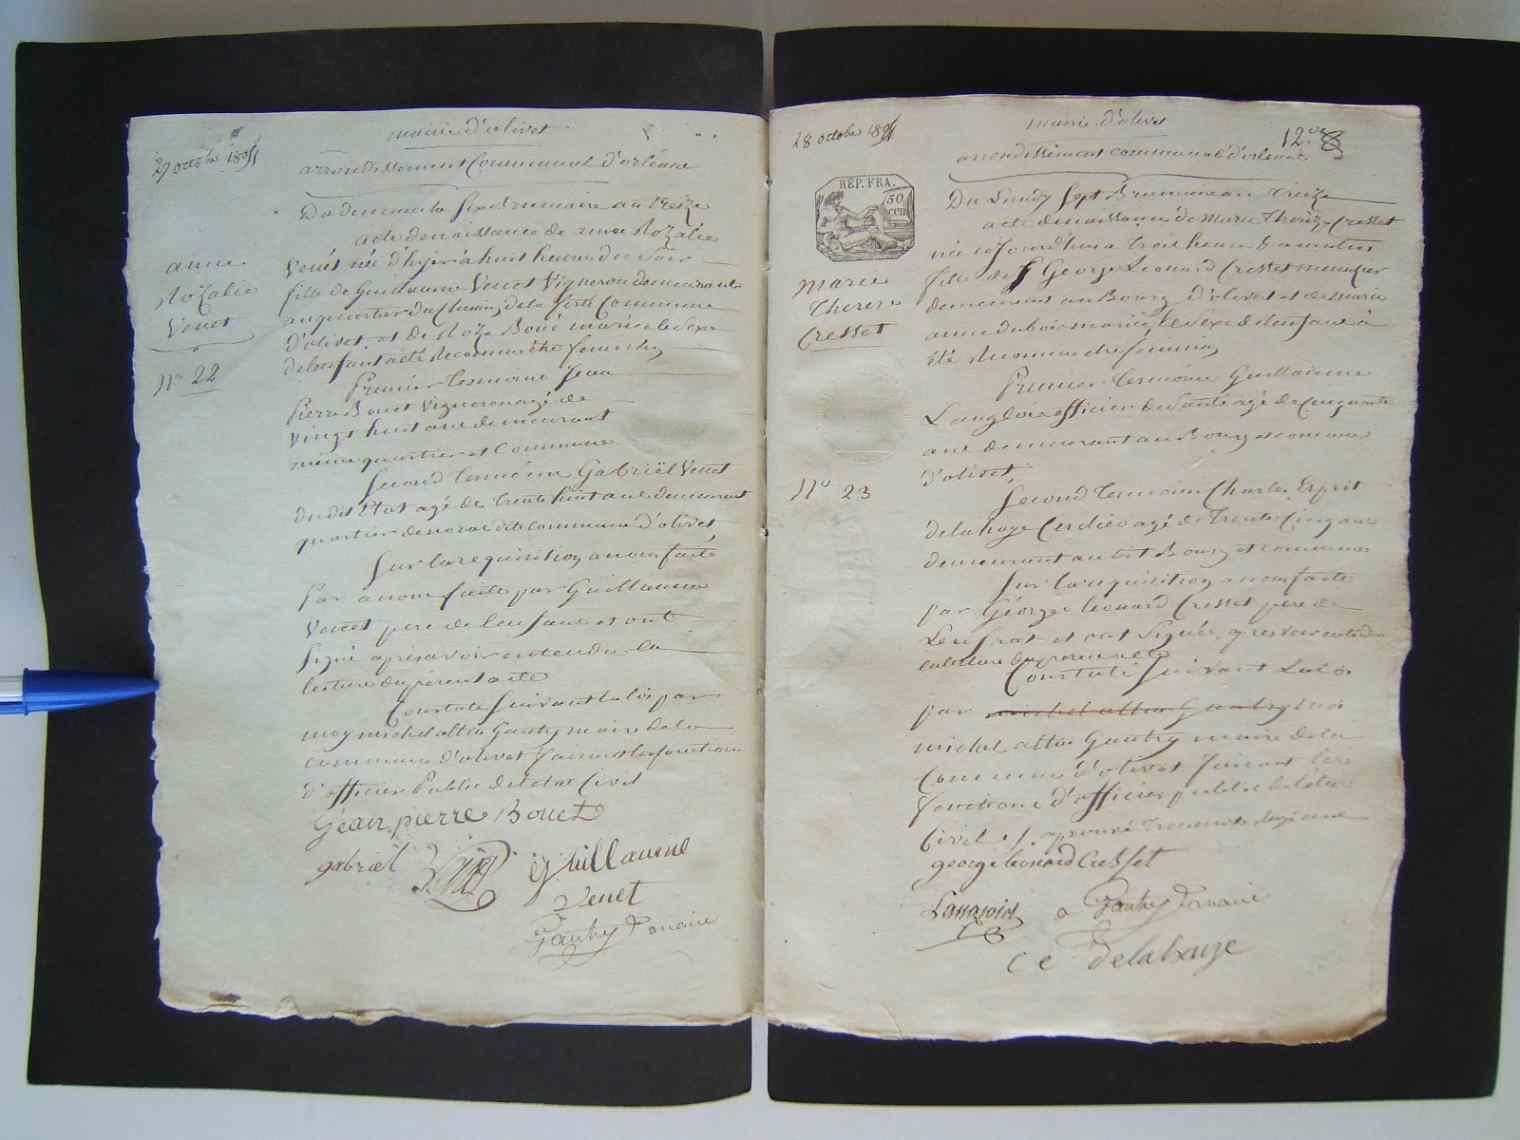 mairie d'olivet
27 octobre 1804
arrondissement Communal d'orléans
Du dimanche six Brumaire an treize
acte de naissance de anne Rozalie
anne
Rozalie
Venet
N° 22
Venet née d'hyer à huit heures du soir
fille de Guillaume Venet Vigneron demeurant
au quartier du chemin de la ferté Commune
d'olivet et de Roze Boué mariée le Sexe
de l'enfant a été Reconnu être feminin
Premier temoins Jean
Pierre Bouet Vigneron agé de
Vingt huit ans demeurant
même quartier et Commune
Second temoins Gabriël Venet
du dit Etat agé de trente huit ans demeurant
quartier de commune d'olivet
Sur la requisition a nous faite
par a nous faite par Guillaume
Venet pere de l'enfant et ont
signé après avoir entendu la
lecture du présent acte
Constaté suivant la loi par
moy michel altin Gautry maire de la
commune d'olivet faisant les fonctions
d'officier Public de l'état Civil
Géan pierre Bouet
gabriël
Guillaume
Venet
Gautry maire
28 octobre 1804
mairie d'olivet
12
arrondissement communal d'orleans
REP. FRA.
50
cen
Du Lundy Sept Brumaire an treize
acte de naissance de Marie Thereze Cresset
née cejourd'hui a trois heures du matin
Marie
Therese
Cresset
fille de George Leonard Cresset meunier
demeurant au Bourg d'olivet et de Marie
anne dubois mariés, le Sexe de l'enfant à
été Reconnu etre feminin
Premier temoins Guillaume
Langlois officier de Santé agé de Cinquante
ans demeurant au Bourg et commune
d'olivet,
N° 23
Second temoins Charles Esprit
delahaye agé de trente Cinq ans
demeurant au dit Bourg et commune
Sur la requisition a nous faite
par George leonard Cresset pere de
L'enfant et ont signés apres avoir entendu
la lecture du présent acte
Constaté suivant La loi
par michel altin Gautry moi
michel altin Gautry maire de la
Commune d'olivet faisant les
fonctions d'officier public de l'état
Civil
george leonard Cresset
Langlois
Gautry maire
c e Delahaye